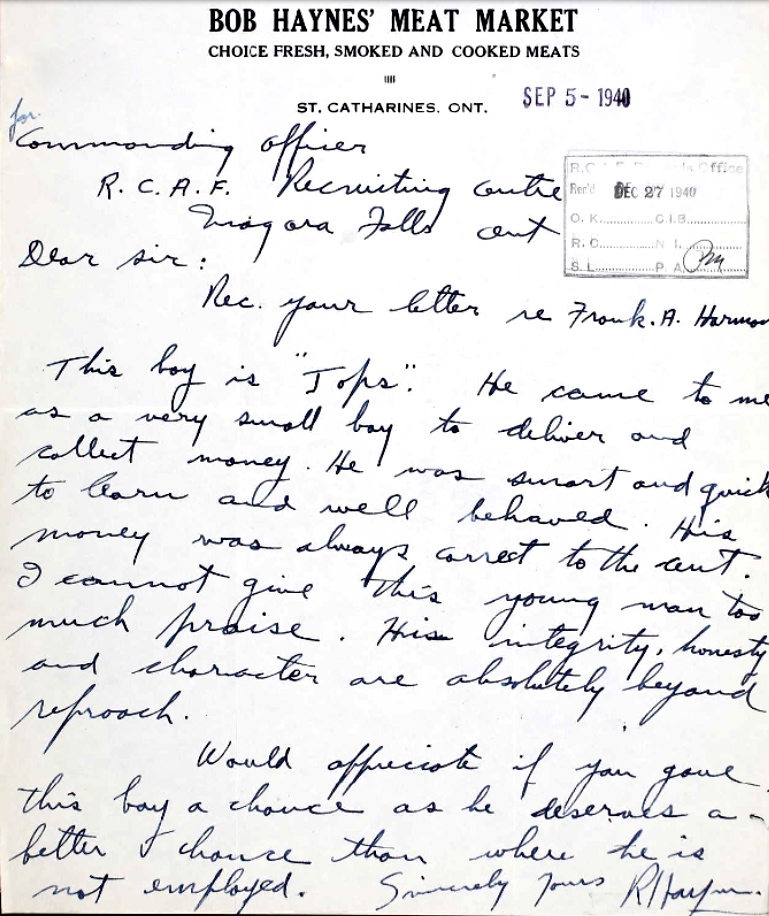 BOB HAYNES' MEAT MARKET
CHOICE FRESH, SMOKED AND COOKED MEATS
ST. CATHARINES, ONT.
SEP 5 - 1940
for
Commanding officer
R.C.A.F. Recruiting centre
Niagara Falls ont
R.C.A.F. Records Office
Rec'd DEC 27 1940
O. K. C.I.B.
R. C. N. I.
S. L. P. A.
Dear sir:
Rec. your letter re Frank. A. Harmon
This boy is "Tops". He came to me
as a very small boy to deliver and
collect money. He was smart and quick
to learn and well behaved. His
money was always correct to the cent.
I cannot give this young man too
much praise. His integrity, honesty
and character are absolutely beyond
reproach.
Would appreciate if you gave
this boy a chance as he deserves a
better chance than where he is
not employed. Sincerely Yours